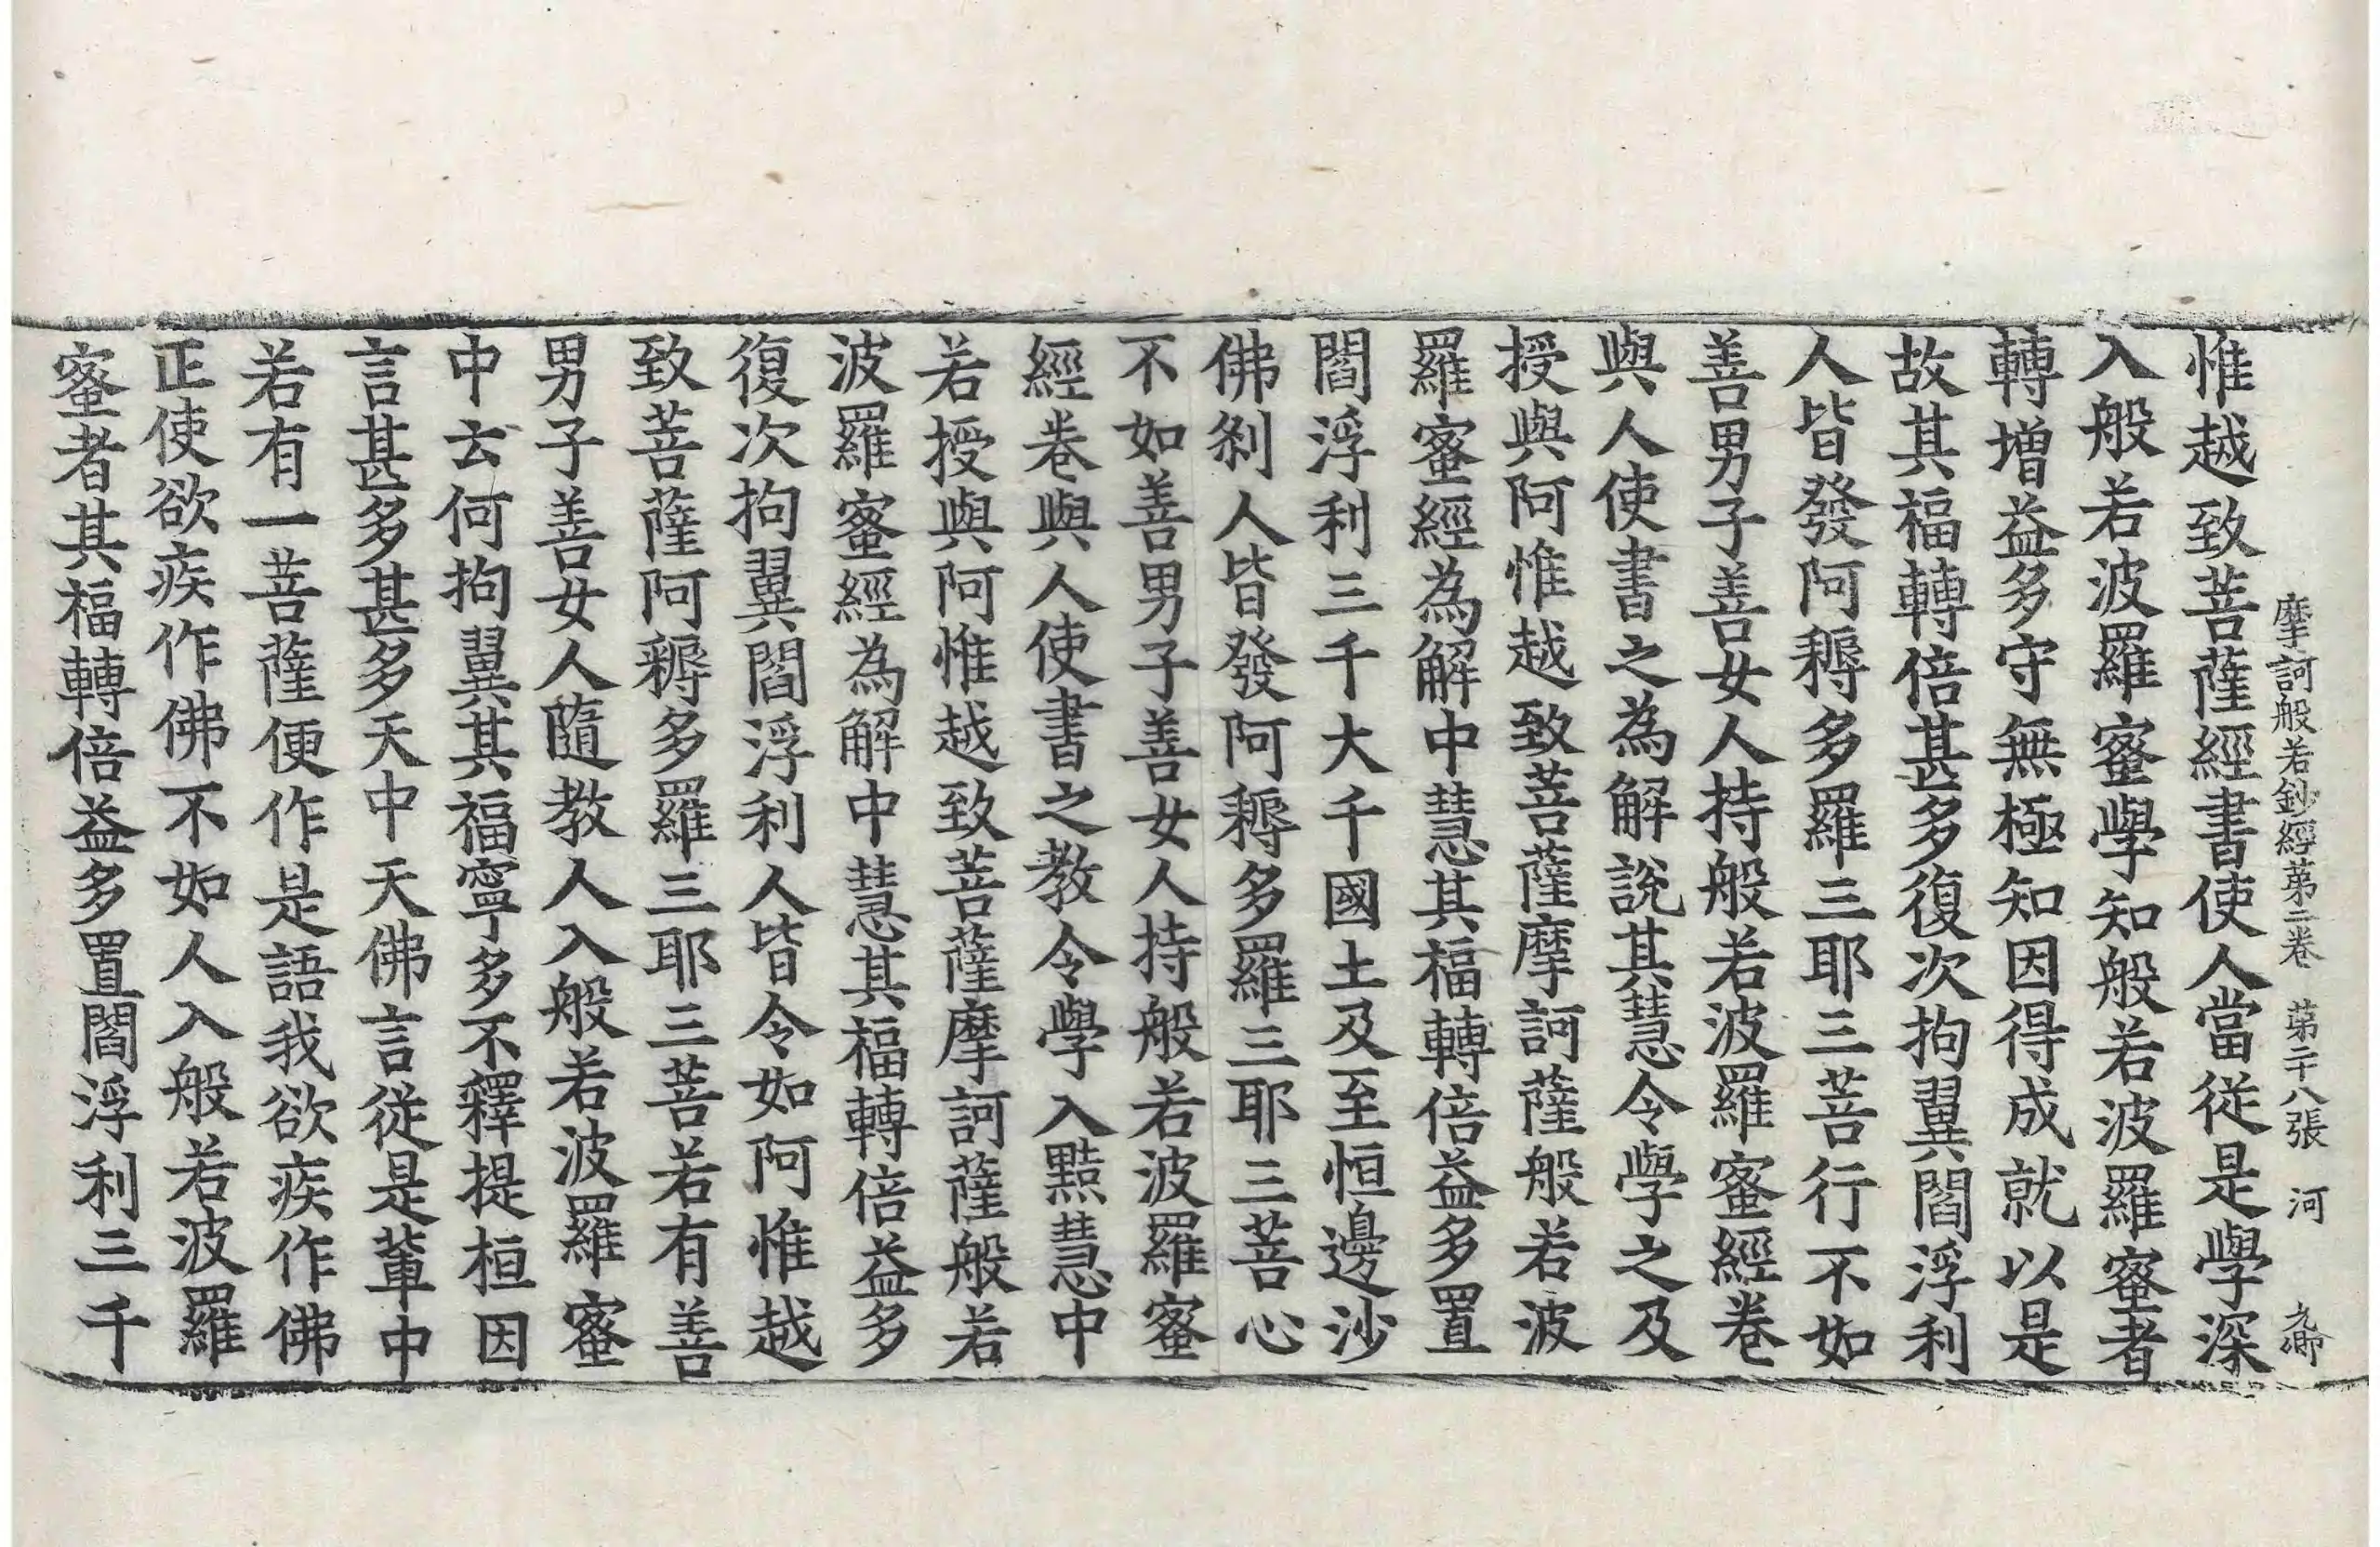 摩訶般若鈔經第二卷 第二十八張 河
惟越致菩薩經書使人當從是學深
入般若波羅蜜學知般若波羅蜜者
轉增益多守無極知因得成就以是
故其福轉倍甚多復次拘翼閻浮利
人皆發阿耨多羅三耶三菩行不如
善男子善女人持般若波羅蜜經卷
與人使書之為解說其慧令學之及
授與阿惟越致菩薩摩訶薩般若波
羅蜜經為解中慧其福轉倍益多置
閻浮利三千大千國土及至恒邊沙
佛剎人皆發阿耨多羅三耶三菩心
不如善男子善女人持般若波羅蜜
經卷與人使書之教令學入黠慧中
若授與阿惟越致菩薩摩訶薩般若
波羅蜜經為解中慧其福轉倍益多
復次拘翼閻浮利人皆令如阿惟越
致菩薩阿耨多羅三耶三菩若有善
男子善女人隨教人入般若波羅蜜
中云何拘翼其福寧多不釋提桓因
言甚多甚多天中天佛言從是輩中
若有一菩薩便作是語我欲疾作佛
正使欲疾作佛不如人入般若波羅
蜜者其福轉倍益多置閻浮利三千